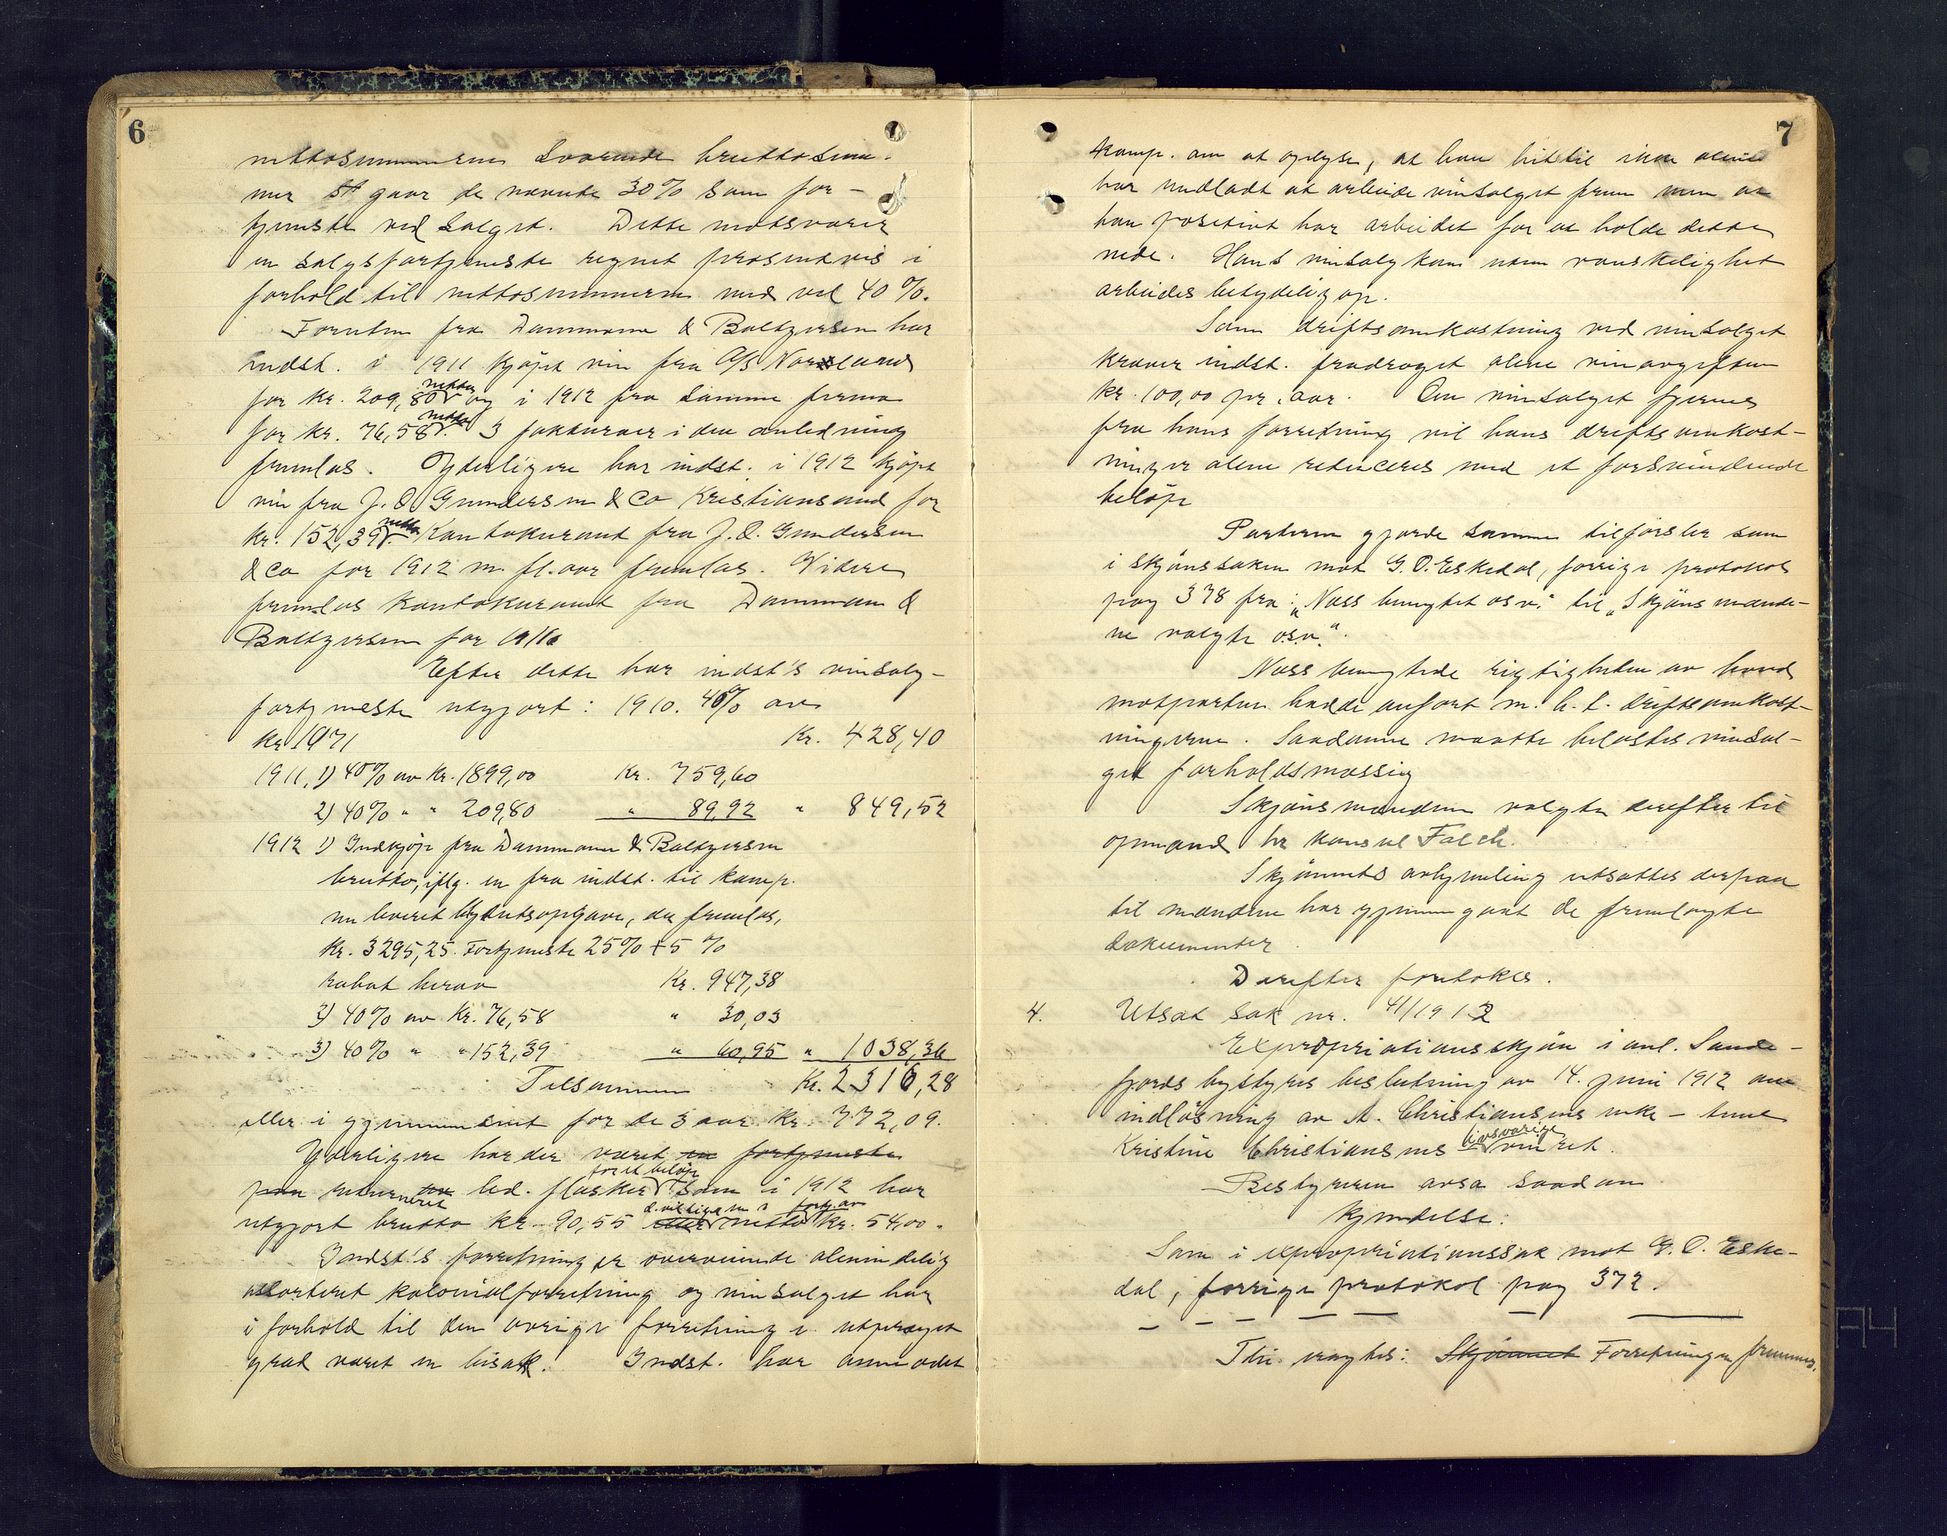 6
nettosummerne svarende bruttosum-
mer så gaar de nævnte 30% som for-
tjeneste ved salget. Dette motsvarer
en salgsfortjeneste regnet prosentvis i
forhold til nettosummerne med vel 40%.
Foruten fra Dammann & Baltzersen har
indst. i 1911 kjøpt vin fra A/S Norsland
for kr. 209,80 netto og i 1912 fra samme firma
for kr. 76,58 netto. 3 fakturaer i den anledning
fremlas. Yderligere har indst. i 1912 kjøpt
vin fra J. O. Gundersen & Co Kristiansand for
kr. 152,39 netto. Kontokurant fra J. O. Gundersen
& Co for 1912 m. fl. aar fremlas. Videre
fremlas kontokurant fra Dammann &
Baltzersen for 1911.
Efter dette har indst's vinsalg-
fortjeneste utgjort: 1910. 40% av
kr 1071 Kr. 428,40
1911, 1) 40% av Kr. 1899,00 Kr. 759,60
2) 40% " " 209,80 " 89,92 " 849,52
1912 1) Indkjøp fra Dammann & Baltzersen
brutto, iflg. en fra indst. til komp.
nu leveret opgave, der fremlas,
Kr. 3295,25. Fortjeneste 25% + 5 %
rabat herav Kr. 947,38
2) 40% av Kr. 76,58 " 30,03
3) 40% " " 152,39 " 60,95 " 1038,36
Tilsammen Kr. 2316,28
eller i gjennemsnit for de 3 aar kr. 772,09.
Yderligere har der været en fortjeneste
paa returneret led. flasker for et beløp som i 1912 har
utgjort brutto kr. 90,55 netto kr. 54,00.
Indst's forretning er overveiende almindelig
assorteret kolonialforretning og vinsalget har
i forhold til den øvrige forretning i utpræget
grad været en bisak. Indst. har anmodet
7
komp. om at oplyse, at han hittil ikke alene
har undladt at arbeide vinsalget frem men at
han positivt har arbeidet for at holde dette
nede. Hans vinsalg kan uten vanskelighet
arbeides betydelig op.
Som driftsomkostning ved vinsalget
kræver indst. fradraget alene vinavgiften
kr. 100,00 pr. aar. Om vinsalget fjernes
fra hans forretning vil hans driftsomkost-
ninger alene reduceres med et forsvindende
beløp
Parterne gjorde samme tilførsler som
i skjønssaken mot G. O. Eskedal, forrige protokol
pag 378 fra: "Nass benegtet osv." til "Skjønsmænde-
ne valgte o.s.v.".
Nass benegtede rigtigheten av hvad
motparten hadde anført m. h. t. driftsomkost-
ningerne. Saadanne maatte belastes vinsal-
get forholdsmæssig
Skjønsmændene valgte derefter til
opmand hr konsul Falch.
Skjønnets avhjemling utsattes derpaa
til mændene har gjennemgaat de fremlagte
dokumenter.
Derefter foretokes.
4. Utsat sak nr. 41/1913
Expropriationsskjøn i anl. Sande-
fjords bystyres beslutning av 14. juni 1912 om
indløsning av A. Christiansens enke – enke
Kristine Christiansens livsvarige vinret.
Bestyreren avsa saadan
kjendelse:
Som i expropriationssak mot G. O. Eske-
dal, forrige protokol pag 372.
Thi eragtes: Skjønnet Forretningen fremmes.